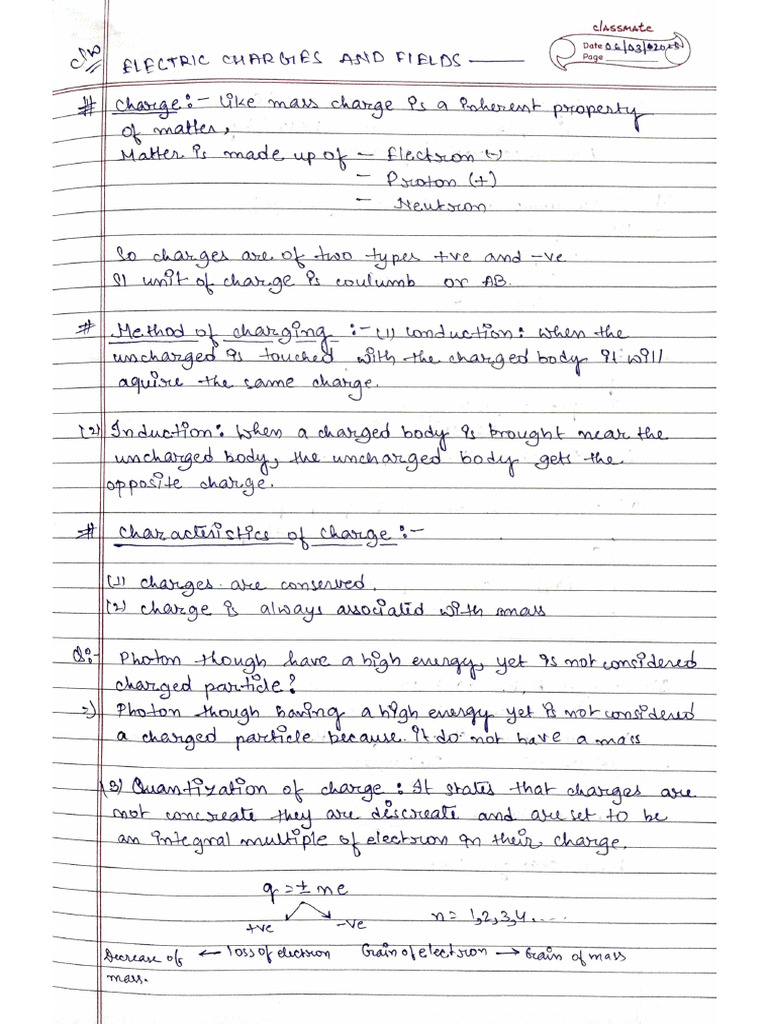 classmate
Date 06/03/2025
Page
C/W
ELECTRIC CHARGES AND FIELDS
# Charge :- Like mass charge is a inherent property
of matter,
Matter is made up of - Electron (-)
- Proton (+)
- Neutron
So charges are of two types +ve and -ve
SI unit of charge is coulumb or AB.
# Method of charging :- (1) Conduction: when the
uncharged is touched with the charged body it will
aquire the same charge.
(2) Induction: When a charged body is brought near the
uncharged body, the uncharged body gets the
opposite charge.
# Characteristics of charge :-
(1) charges are conserved.
(2) charge is always associated with mass
Q:- Photon though have a high energy, yet is not considered
charged particle?
=) Photon though having a high energy yet is not considered
a charged particle because it do not have a mass
(3) Quantization of charge : It states that charges are
not concreate they are discreate and are set to be
an integral multiple of electron in their charge.
q = ± ne
+ve -ve n = 1,2,3,4....
Decrease of ← loss of electron Grain of electron → Grain of mass
mass.